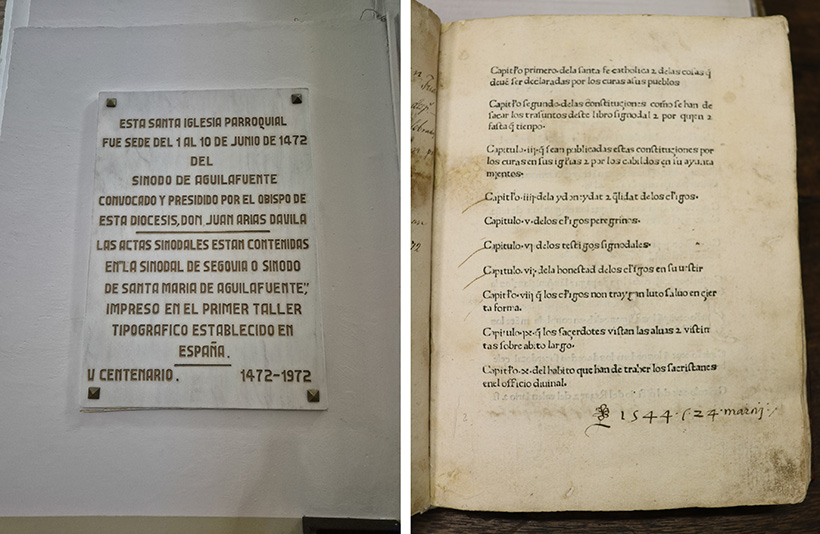 ESTA SANTA IGLESIA PARROQUIAL
FUE SEDE DEL 1 AL 10 DE JUNIO DE 1472
DEL
SINODO DE AGUILAFUENTE
CONVOCADO Y PRESIDIDO POR EL OBISPO DE
ESTA DIOCESIS, DON JUAN ARIAS DAVILA
LAS ACTAS SINODALES ESTAN CONTENIDAS
EN "LA SINODAL DE SEGOVIA O SINODO
DE SANTA MARIA DE AGUILAFUENTE",
IMPRESO EN EL PRIMER TALLER
TIPOGRAFICO ESTABLECIDO EN
ESPAÑA.
V CENTENARIO. 1472-1972
Capitľo primero dela santa fe catholica ⁊ delas cosas q̃
deuẽ ser declaradas por los curas asus pueblos
Capitľo segundo delas constituçiones como se han de
sacar los trasuntos deste libro signodal ⁊ por quien ⁊
fasta q̃ tienpo.
Capitulo .iij. q̃ sean publicadas estas constituçiones por
los curas en sus igľias ⁊ por los cabildos en su ayunta
mientos.
Capitľo .iiij. dela ydoneydat ⁊ q̃lidat delos cľigos.
Capitulo .v. delos cľigos peregrinos.
Capitulo .vj. delos testigos signodales.
Capitulo .vij. dela honestad delos cľigos en su vestir
Capitľo .viij. q̃ los cľigos non traygan luto saluo en çier
ta forma.
Capitulo .ix. q̃ los saçerdotes vistan las aluas ⁊ vestin
tas sobre abito largo.
Capitľo .x. del habito que han de traher los sacristanes
enel officio diuinal.
1544